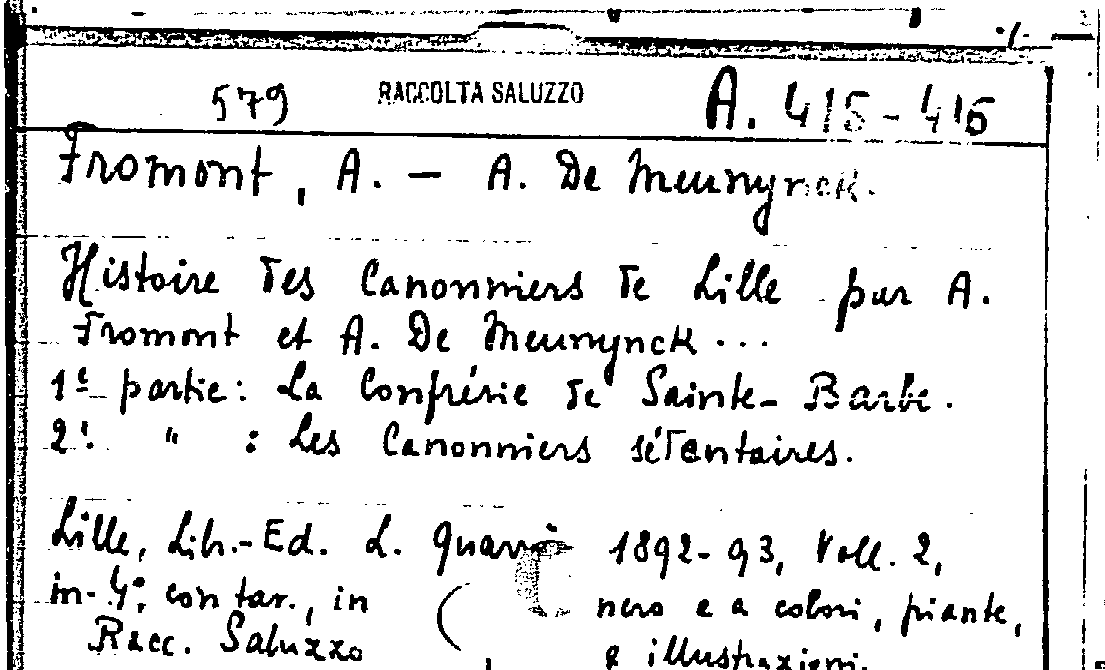 579 RACCOLTA SALUZZO A. 415-416
Fromont, A. — A. De Meunynck.
Histoire des Canonniers de Lille par A.
Fromont et A. De Meunynck ...
1e partie: La Confrérie de Sainte-Barbe.
2e. " : Les Canonniers sédentaires.
Lille, Lib.-Ed. L. 1892-93, Voll. 2,
in-4°, con tav., in nero e a colori, piante,
Racc. Saluzzo e illustrazioni.